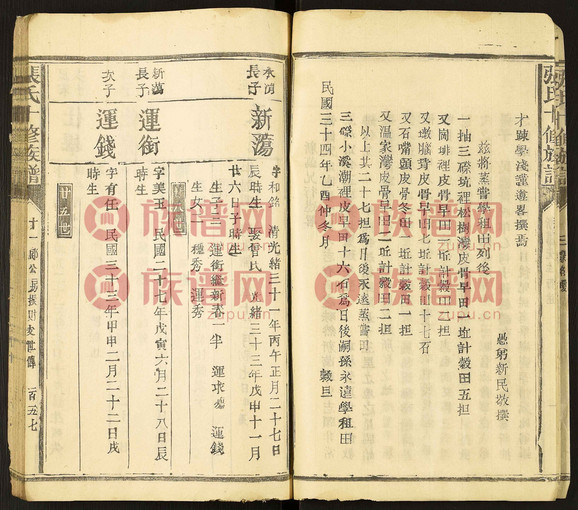 才疎學淺謹遵畧撰焉
愚
新民敬撰
茲將蒸嘗學租田列後
一抽三磜坑裡松樹
皮骨早田一坵計穀田五担
又崗
裡皮骨早田
又墩
背皮骨早田七坵計穀田十七石
又石嘴頭皮骨
田一坵計穀田一担
又溫家灣皮骨早田二坵計穀田二担
以上共二十七担為月後永遠蒸嘗田
三磜小溪潮裡皮早田十六石為日後嗣孫永遠學租田
民國三十四年乙酉仲冬月
穀旦
張氏十修族譜
長子
新蕩
字和銘
清光緒三十
年丙午正月二十七日
辰時生
娶曾氏
光緒三十三年戊申十一月
廿六日子時生
生子
運銜
運錢
生女
種秀
運秀
廿五世
新蕩
長子
運銜
字美玉
民國二十七年戊寅六月二十八日辰
時生
次子
運錢
字有任
民國三十三年甲申二月二十二日戌
時生
張氏十修族譜
廿一郎公
世傳
一百五七
族谱网
zupu.cn